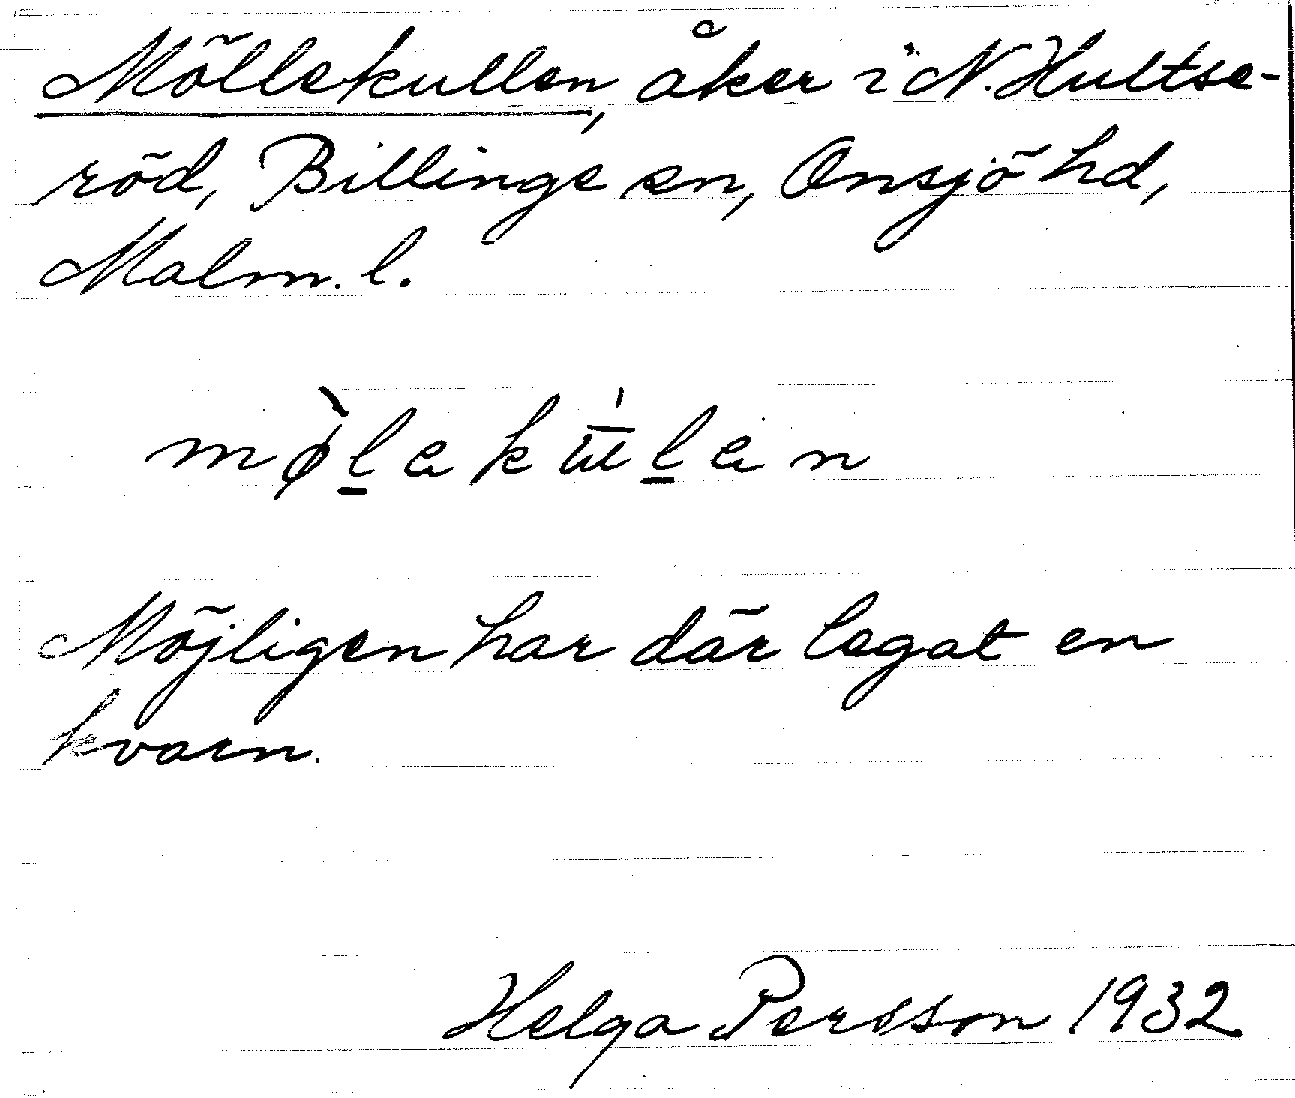 Möllekullen, åker i N. Hultse-
röd, Billinge sn, Onsjö hd,
Malm. l.
mø̀l̲ekúl̲en
Möjligen har där legat en
kvarn.
Helga Persson 1932